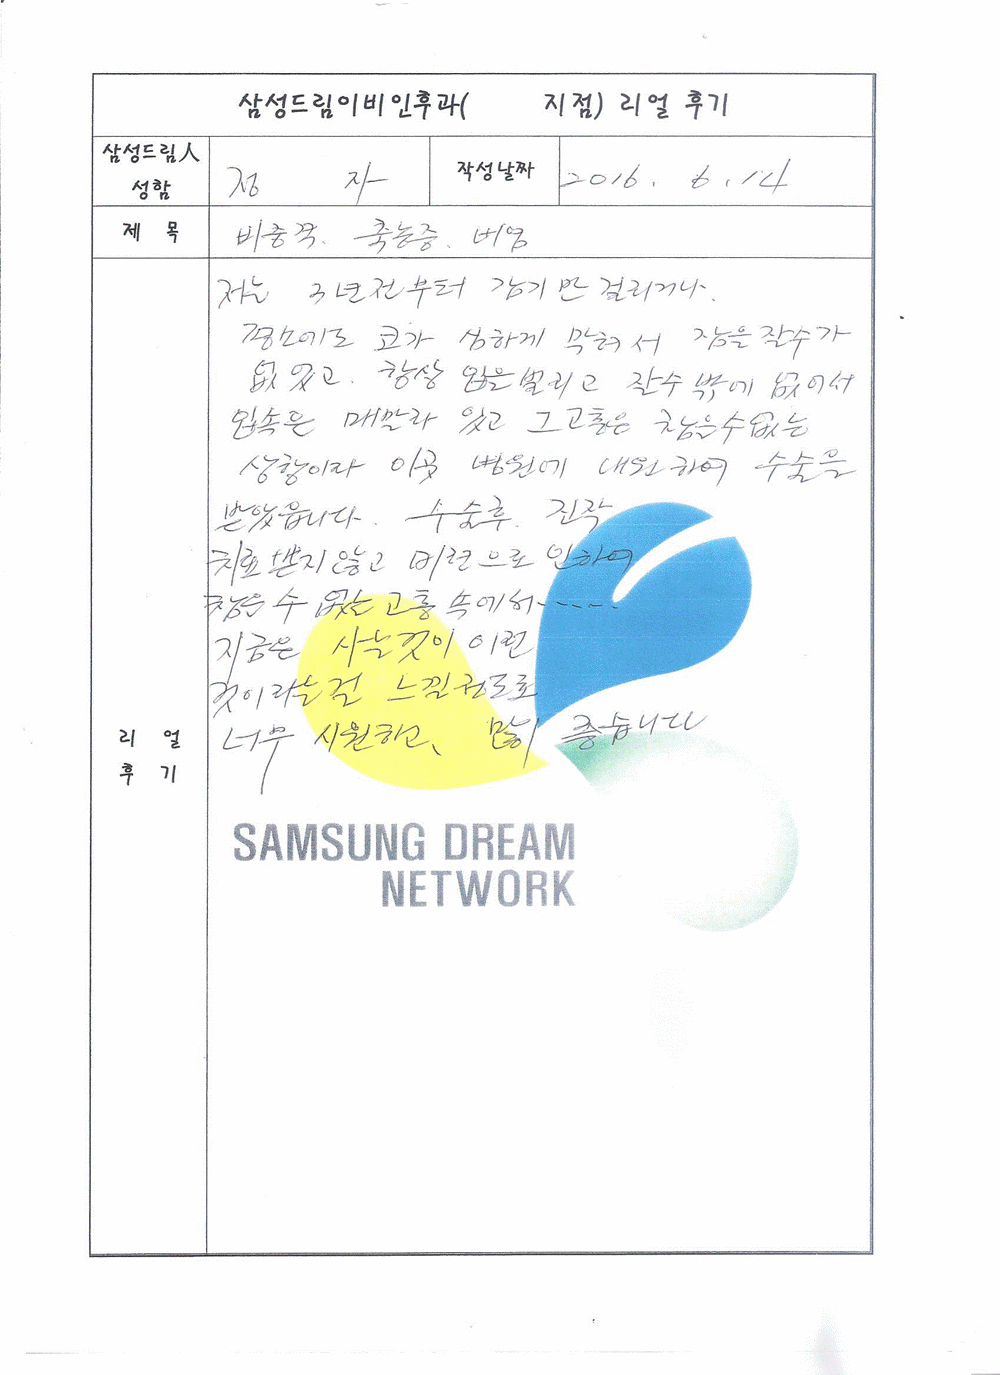 삼성드림이비인후과( 지점) 리얼 후기
삼성드림人 성함
정 자
작성날짜
2016. 6. 14
제 목
비중격. 축농증. 비염
리 얼 후 기
저는 3년전부터 감기만 걸리거나.
평소에도 코가 심하게 막혀서 잠을 잘수가
없었고. 항상 입을 벌리고 잘수 밖에 없어서
입속은 매말라 있고 그고통은 참을수없는
상황이라 이곳 병원에 내원하여 수술을
받았읍니다. 수술후. 진작
치료받지않고 미련으로 인하여
참을 수 없는 고통 속에서.....
지금은 사는것이 이런
것이라는걸 느낄정도로
너무 시원하고, 많이 좋습니다
SAMSUNG DREAM
NETWORK